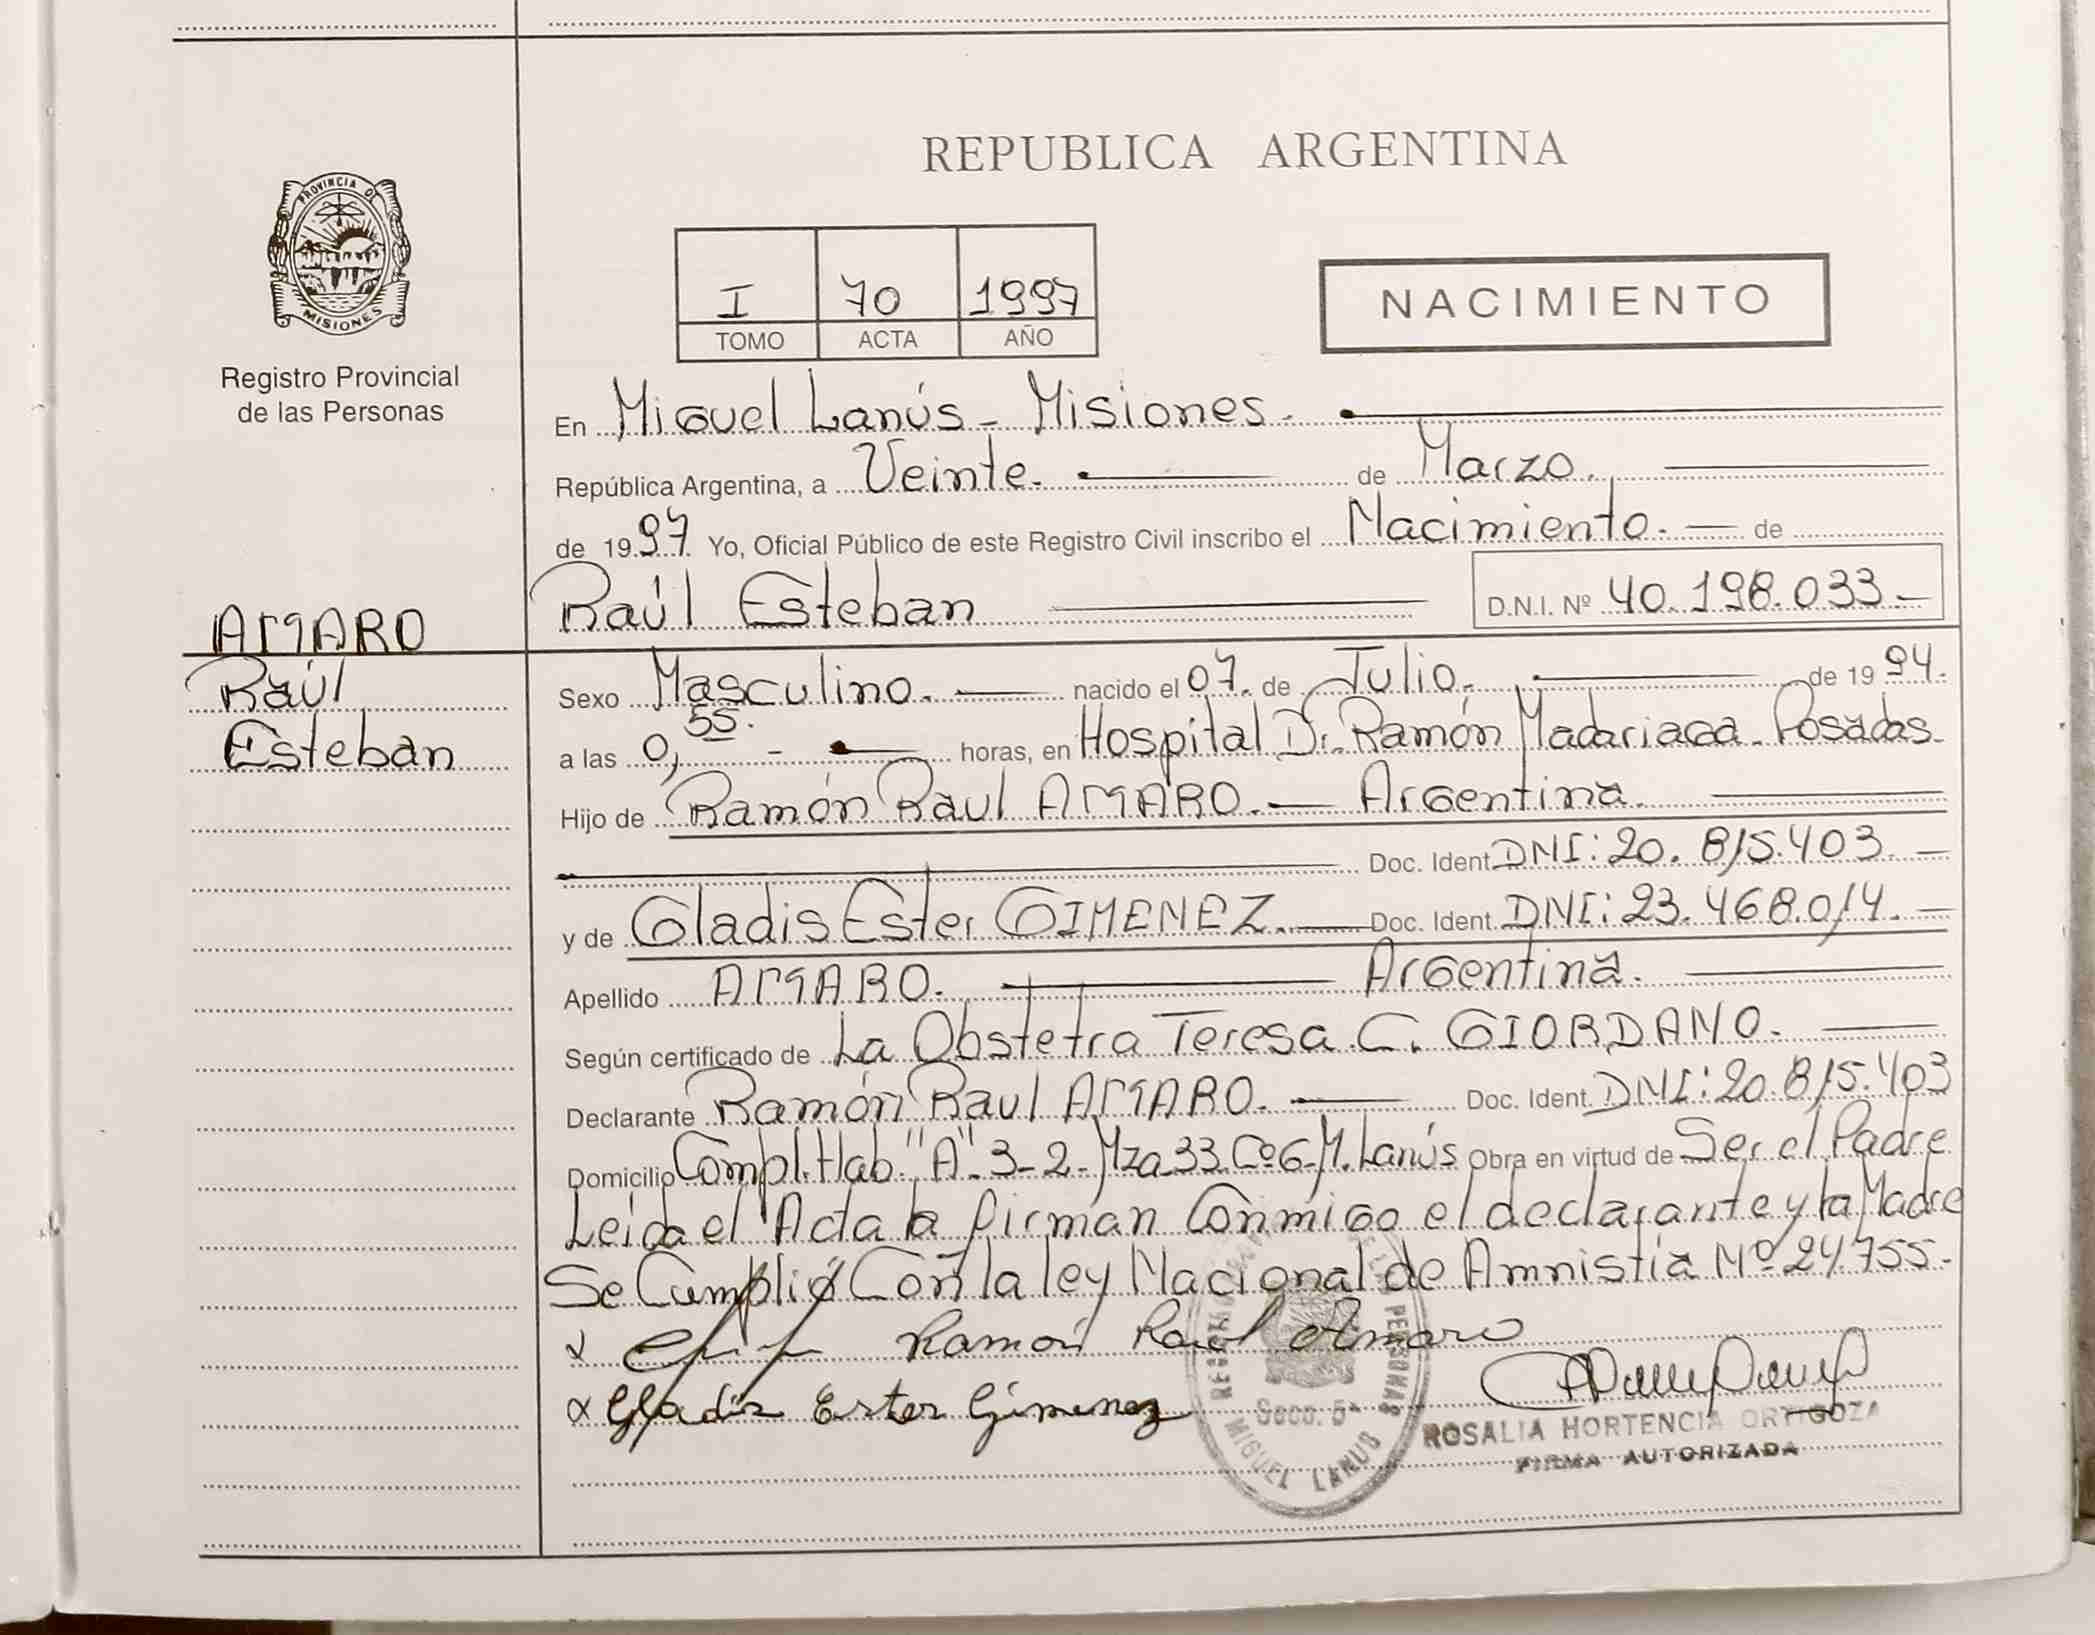 REPUBLICA ARGENTINA
PROVINCIA DE
MISIONES
Registro Provincial
de las Personas
I 70 1997
TOMO ACTA AÑO
NACIMIENTO
En Miguel Lanús - Misiones.
República Argentina, a Veinte. de Marzo.
de 1997 Yo, Oficial Público de este Registro Civil inscribo el Nacimiento. de
Raúl Esteban D.N.I. Nº 40.198.033.-
AMARO
Raúl
Esteban
Sexo Masculino. nacido el 07. de Julio. de 1994.
a las 0,55. - horas, en Hospital Dr. Ramón Madariaga - Posadas.
Hijo de Ramón Raul AMARO. Argentina.
Doc. Ident. DNI: 20.815.403.-
y de Gladis Ester GIMENEZ. Doc. Ident. DNI: 23.468.014.-
Apellido AMARO. Argentina.
Según certificado de La Obstetra Teresa C. GIORDANO.
Declarante Ramón Raul AMARO. Doc. Ident. DNI: 20.815.403
Domicilio Compl. Hab. "A" 3-2-Mza 33 Cº 6-M. Lanús Obra en virtud de Ser el Padre
Leida el Acta la firman Conmigo el declarante y la Madre
Se Cumplió Con la ley Nacional de Amnistia Nº 24.755.-
Ramon Raul Amaro
Gladis Ester Gimenez
Secc. 5ª
MIGUEL LANUS
ROSALIA HORTENCIA ORTIGOZA
FIRMA AUTORIZADA